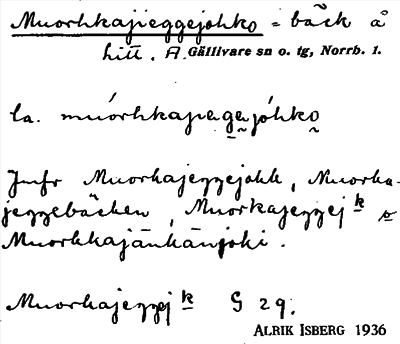 Muorhkajieggejohko = bäck å
hitt. A. Gällivare sn o. tg, Norrb. l.
la. múorhkapiegejóhko
Jmfr Muorkajeggejokk, Muorka-
jeggebäcken, Muorkajeggej k
Muorhkajänkänjoki.
Muorkajeggej k G 29.
ALRIK ISBERG 1936